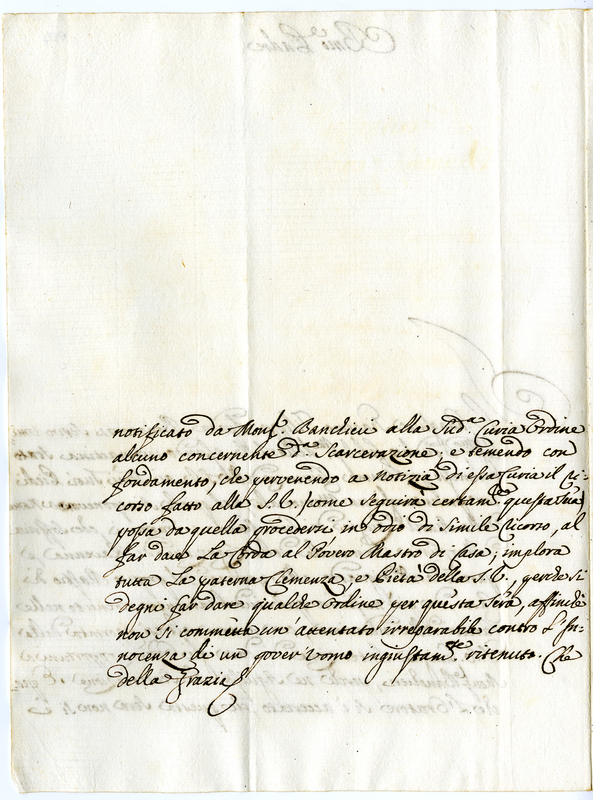 notificato da Mons.r Banchieri alla Sud.a Curia Ordine
alcuno concernente d.a Scarcerazione; e temendo con
fondamento, che pervenendo a Notizia di essa Curia il Ri-
corso fatto alla S.V. (come seguirà certam.te questa sera)
possa da quella procedersi in odio di simile Ricorso, al
far dare La Corda al Povero Mastro di Casa; implora
tutta La paterna Clemenza, e Pietà della S.V., perche si
degni far dare qualche Ordine per questa sera, affinche
non si commetta un' attentato irreparabile contro L' In-
nocenza di un pover' uomo ingiustam.te ritenuto. Che
della Grazia